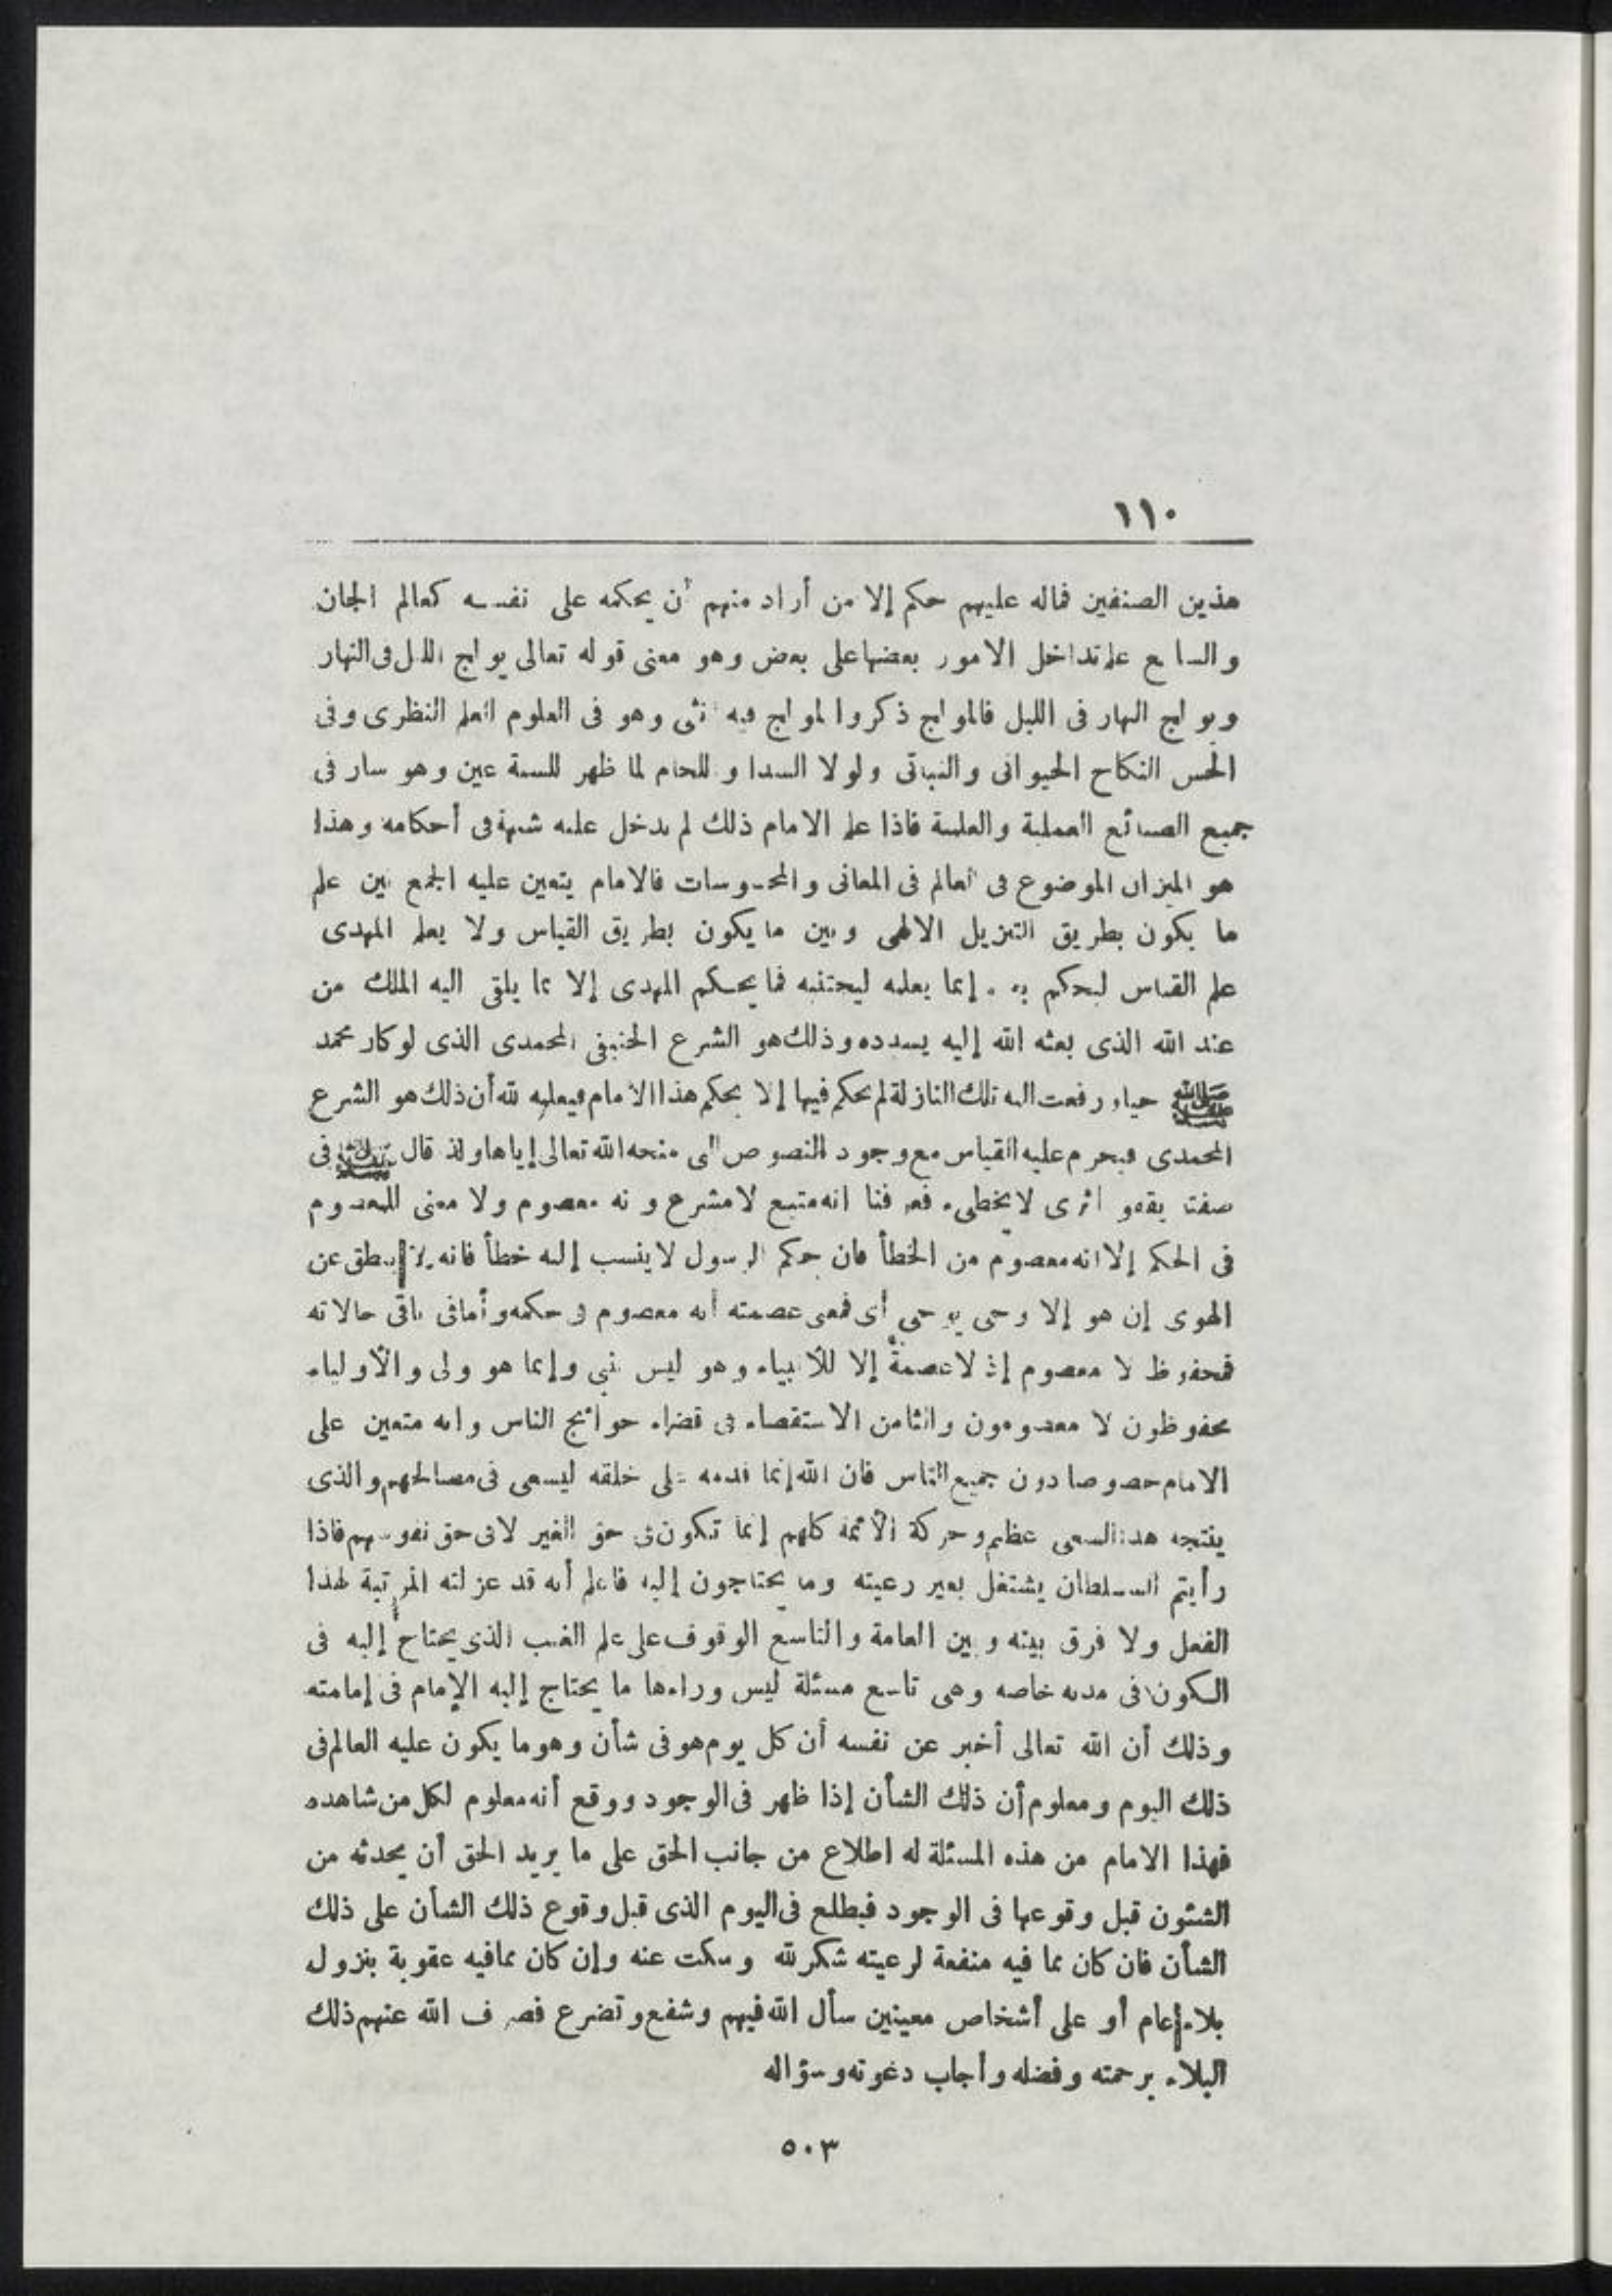 ١١٠
هذين الصنفين فماله عليهم حكم إلا من أراد منهم أن يحكمه على نفسه كعالم الجان
والسابع علم تداخل الامور بعضها على بعض وهو معنى قوله تعالى يولج الليل فى النهار
ويولج النهار فى الليل فالمولج ذكر والمولج فيه أنثى وهو فى العلوم العلم النظرى وفى
الحس النكاح الحيوانى والنباتى ولولا السدا واللحام لما ظهر للسنة عين وهو سار فى
جميع الصنائع العملية والعلمية فاذا علم الامام ذلك لم يدخل عليه شبهة فى أحكامه وهذا
هو الميزان الموضوع فى العالم فى المعانى والمحسوسات فالامام يتعين عليه الجمع بين علم
ما يكون بطريق التنزيل الالهى وبين ما يكون بطريق القياس ولا يعلم المهدى
علم القياس ليحكم به وإنما يعلمه ليجتنبه فما يحكم المهدى إلا بما يلقى اليه الملك من
عند الله الذى بعثه الله إليه يسدده وذلك هو الشرع الحنيفى المحمدى الذى لو كان محمد
ﷺ حيا ورفعت اليه تلك النازلة لم يحكم فيها إلا بحكم هذا الامام فيعلمه لله أن ذلك هو الشرع
المحمدى فيحرم عليه القياس مع وجود النصوص التى منحه الله تعالى إياها ولذ قال ﷺ فى
صفته يقفو أثرى لا يخطىء فعرفنا انه متبع لا مشرع وانه معصوم ولا معنى للمعصوم
فى الحكم إلا انه معصوم من الخطأ فان حكم الرسول لا ينسب إليه خطأ فانه لا ينطق عن
الهوى إن هو إلا وحى يوحى أى فمعنى عصمته أنه معصوم فى حكمه وأما فى باقى حالاته
فمحفوظ لا معصوم إذ لا عصمة إلا للأنبياء وهو ليس بنبى وإنما هو ولى والأولياء
محفوظون لا معصومون والثامن الاستقصاء فى قضاء حوائج الناس وانه متعين على
الامام خصوصا دون جميع الناس فان الله إنما قدمه على خلقه ليسعى فى مصالحهم والذى
ينتجه هذا السعى عظيم وحركة الأئمة كلهم إنما تكون فى حق الغير لا فى حق نفوسهم فاذا
رأيتم السلطان يشتغل بغير رعيته وما يحتاجون إليه فاعلم أنه قد عزلته المرتبة لهذا
الفعل ولا فرق بينه وبين العامة والتاسع الوقوف على علم الغيب الذى يحتاج إليه فى
الكون فى مدته خاصه وهى تاسع مسئلة ليس وراءها ما يحتاج إليه الإمام فى إمامته
وذلك أن الله تعالى أخبر عن نفسه أن كل يوم هو فى شأن وهو ما يكون عليه العالم فى
ذلك اليوم ومعلوم أن ذلك الشأن إذا ظهر فى الوجود ووقع أنه معلوم لكل من شاهده
فهذا الامام من هذه المسئلة له اطلاع من جانب الحق على ما يريد الحق أن يحدثه من
الشئون قبل وقوعها فى الوجود فيطلع فى اليوم الذى قبل وقوع ذلك الشأن على ذلك
الشأن فان كان مما فيه منفعة لرعيته شكر لله وسكت عنه وإن كان مما فيه عقوبة بنزول
بلاء عام أو على أشخاص معينين سأل الله فيهم وشفع وتضرع فصرف الله عنهم ذلك
البلاء برحمته وفضله وأجاب دعوته وسؤاله
٥٠٣